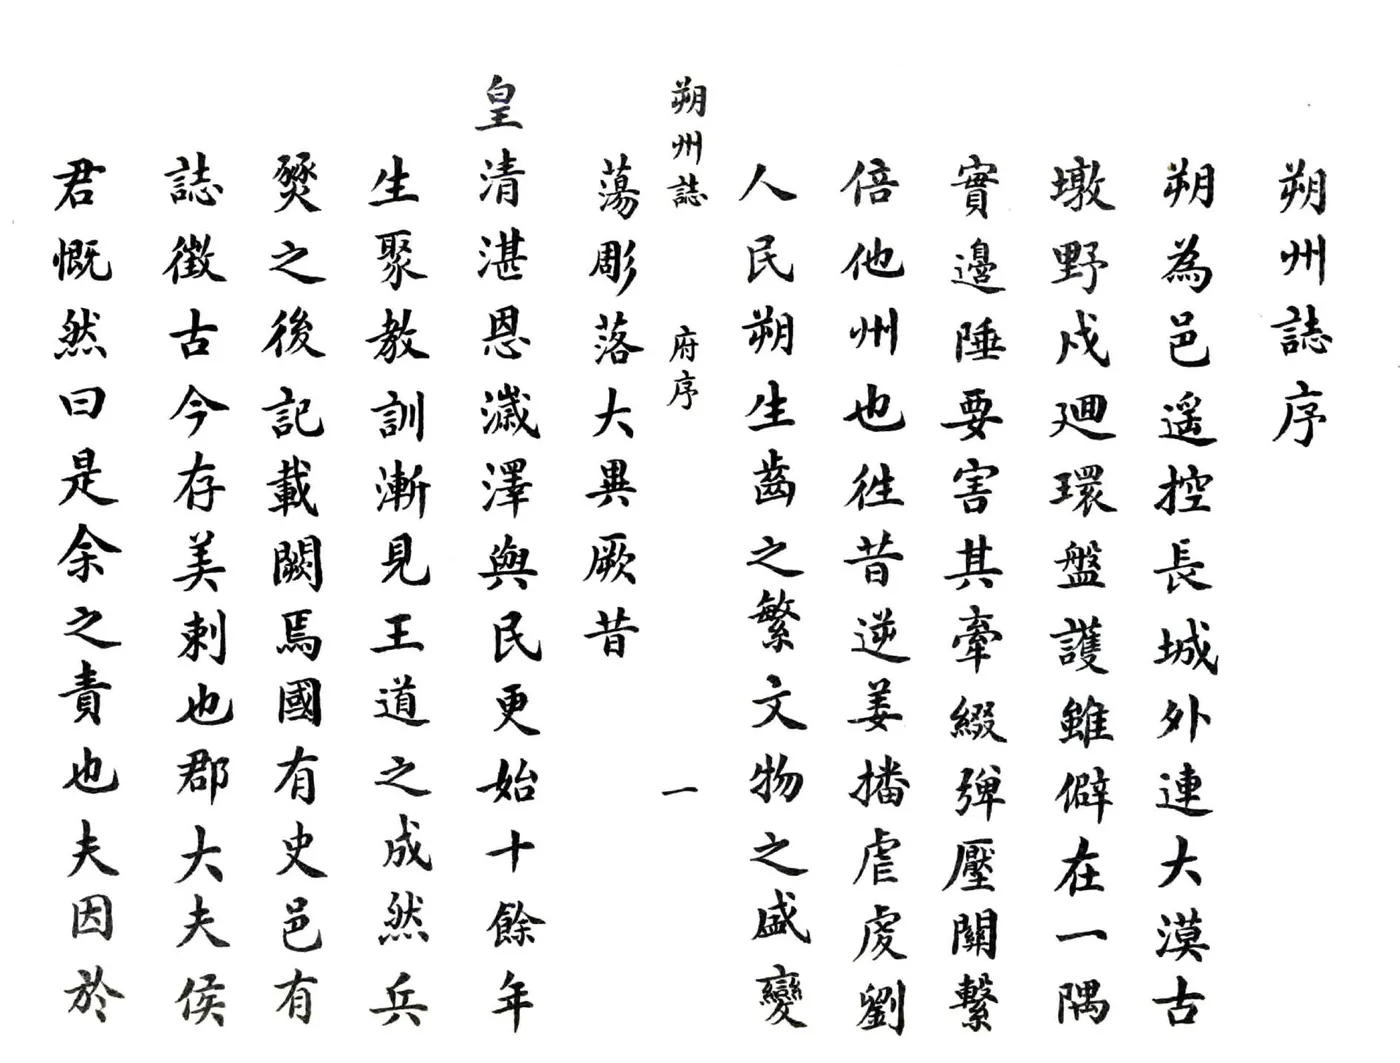 朔州誌序
朔為邑遥控長城外連大漠古
墩野戍廻環盤護雖僻在一隅
實邊陲要害其牽綴彈壓關繫
倍他州也徃昔逆姜播虐虔劉
人民朔生齒之繁文物之盛變
朔州誌 府序 一
蕩彫落大異厥昔
皇清湛恩濊澤與民更始十餘年
生聚教訓漸見王道之成然兵
燹之後記載闕焉國有史邑有
誌徵古今存美刺也郡大夫侯
君慨然曰是余之責也夫因於